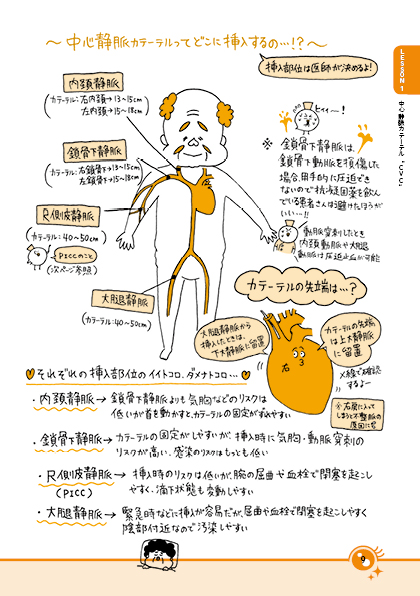 ～中心静脈カテーテルってどこに挿入するの…!?～
挿入部位は医師が決めるよ!
LESSON 1
中心静脈カテーテル
内頚静脈
カテーテル:右内頚→13～15cm
左内頚→15～18cm
ヒィィ～!
鎖骨下静脈
(カテーテル:右鎖骨下→13～15cm
左鎖骨下→15～18cm)
※ 鎖骨下静脈は、
鎖骨下動脈を損傷した
場合、用手的に圧迫でき
ないので抗凝固薬を飲ん
でいる患者さんは避けたほうが
いい…!!
尺側皮静脈
(カテーテル:40～50cm)
PICCのこと
(次ページ参照)
動脈穿刺したとき
内頚動脈や大腿
動脈は圧迫止血が可能
大腿静脈
(カテーテル:40～50cm)
カテーテルの先端は…?
大腿静脈から
挿入したときは、
下大静脈に留置
カテーテルの先端
は上大静脈
に留置
右
X線で確認
するよー
※右房に入って
しまうと不整脈の
原因に!!
それぞれの挿入部位のイイトコロ、ダメナトコロ…
・内頚静脈→鎖骨下静脈よりも気胸などのリスクは
低いが首を動かすと、カテーテルの固定がずれやすい
・鎖骨下静脈→カテーテルの固定がしやすいが、挿入時に気胸・動脈穿刺の
リスクが高い、感染のリスクはもっとも低い
・尺側皮静脈→挿入時のリスクは低いが、腕の屈曲や血栓で閉塞を起こし
(PICC) やすく、滴下状態も変動しやすい
・大腿静脈→緊急時などに挿入が容易だが、屈曲や血栓で閉塞を起こしやすく
陰部付近なので汚染しやすい
9